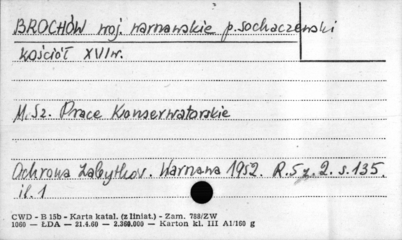 BROCHÓW woj. warszawskie p. sochaczewski
Kościół XVI w.
M. Sz. Prace Konserwatorskie
Ochrona Zabytków. Warszawa 1952. R. 5 z. 2. s. 135.
il. 1
CWD - B 15b - Karta katal. (z liniat.) - Zam. 788/ZW
1060 — LDA — 21.4.60 — 2.360.000 — Karton kl. III A1/160 g